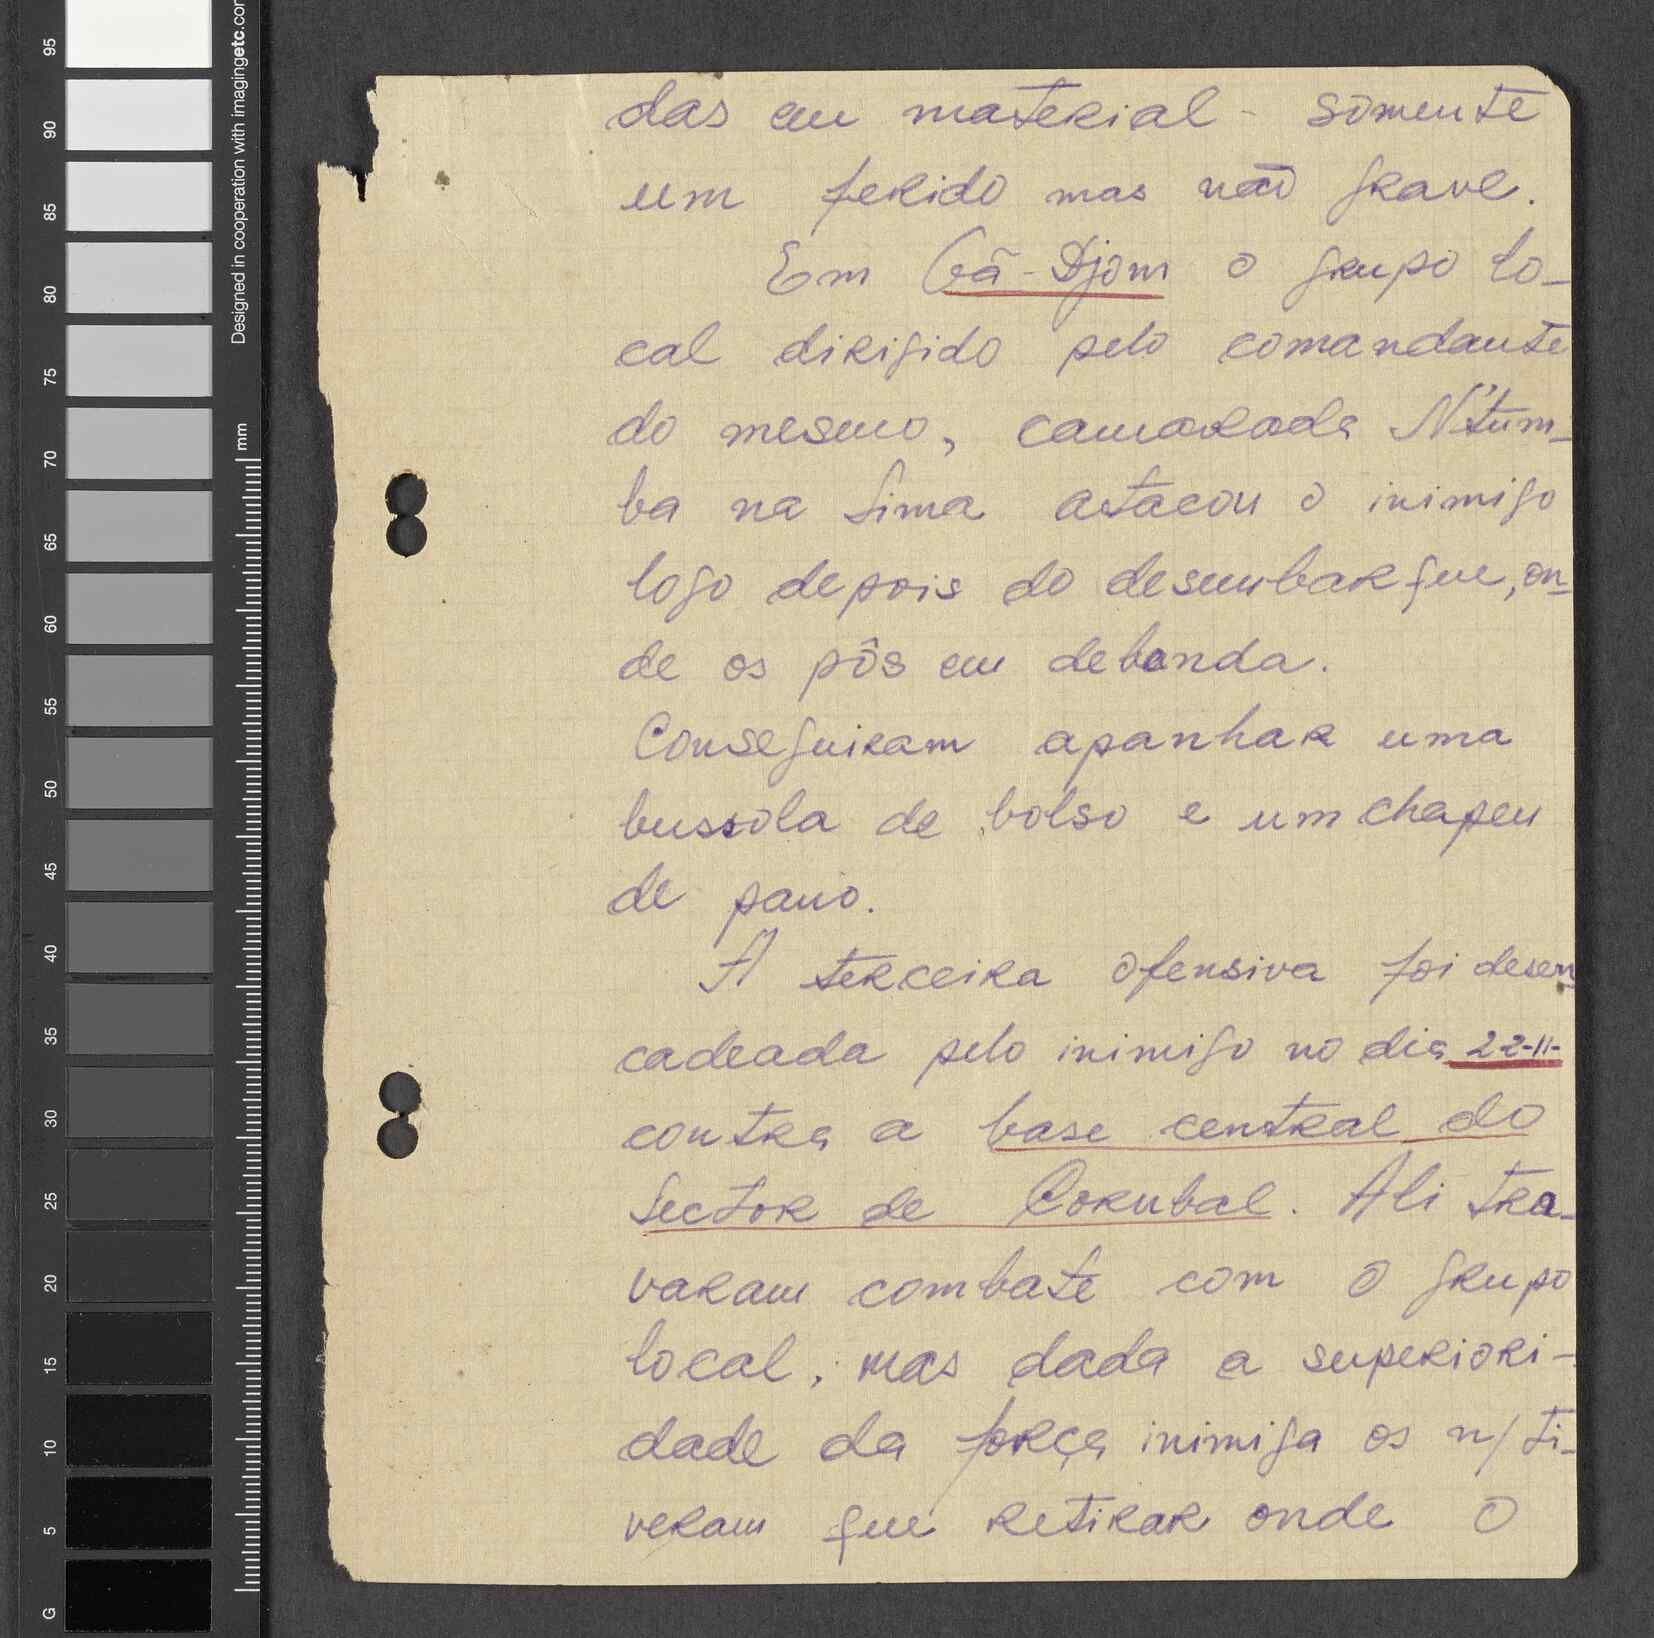 das em material - sòmente
um ferido mas não grave.
Em Gã-Djom o grupo lo-
cal dirigido pelo comandante
do mesmo, camarada N'tum-
ba na Sima atacou o inimigo
logo depois do desembarque, on-
de os pôs em debanda.
Conseguiram apanhar uma
bussola de bolso e um chapeu
de pano.
A terceira ofensiva foi desen
cadeada pelo inimigo no dia 22-11-
contra a base central do
Sector de Corubal. Ali tra-
varam combate com o grupo
local, mas dada a superiori-
dade da força inimiga os n/ ti-
veram que retirar onde o
Designed in cooperation with imagingetc.com
mm
95
90
85
80
75
70
65
60
55
50
45
40
35
30
25
20
15
10
5
G